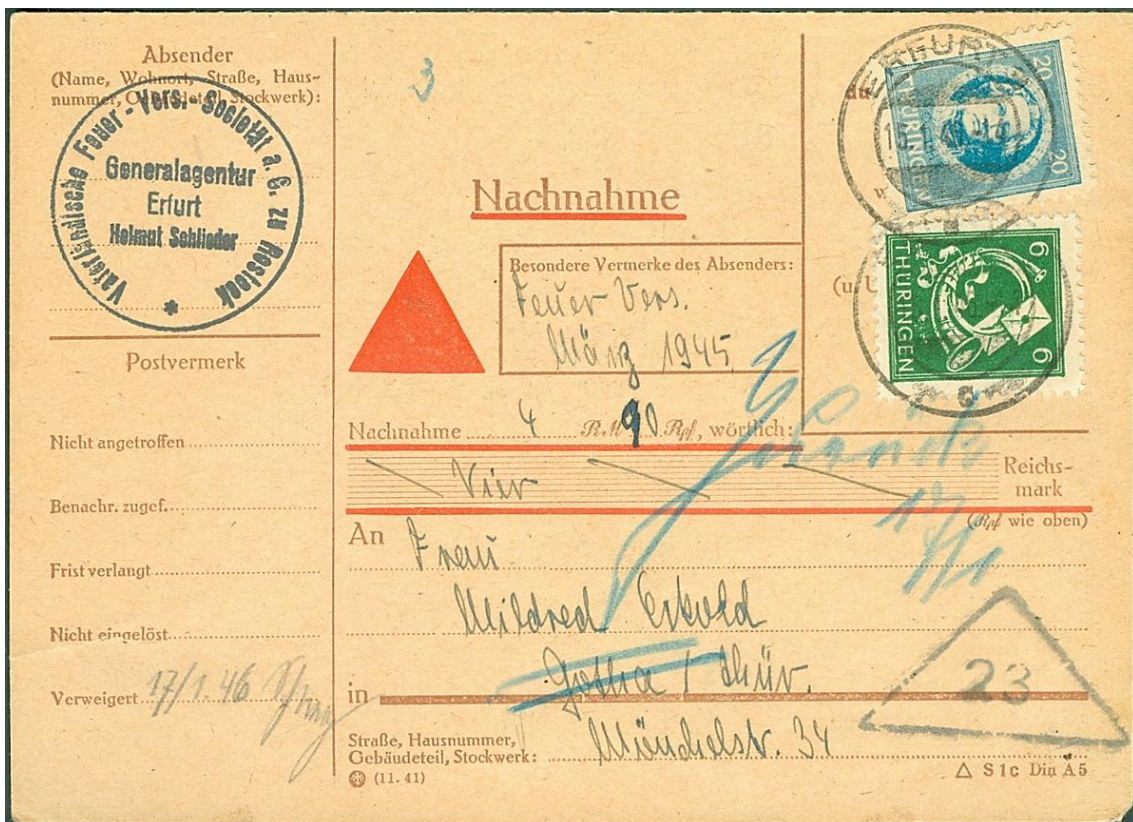 Absender
(Name, Wohnort, Straße, Haus-
nummer, Gebäudeteil, Stockwerk):
Vaterländische Feuer-Vers.-Societät a. G. zu Rostock
Generalagentur
Erfurt
Helmut Schlieder
Postvermerk
Nicht angetroffen
Benachr. zugef.
Frist verlangt
Nicht eingelöst
Verweigert 17/1.46
3
Nachnahme
Besondere Vermerke des Absenders:
Feuer Vers.
März 1945
Nachnahme 4 RM 90 Rpf, wörtlich:
Vier Reichs-
mark
(Rpf wie oben)
An Frau
Mildred
in Gotha / Thür.
Straße, Hausnummer,
Gebäudeteil, Stockwerk: 34
(11. 41)
△ S1c Din A5
ERFURT
15.1.46
20 THÜRINGEN 20
6 THÜRINGEN 6
(u. U
17/1
23